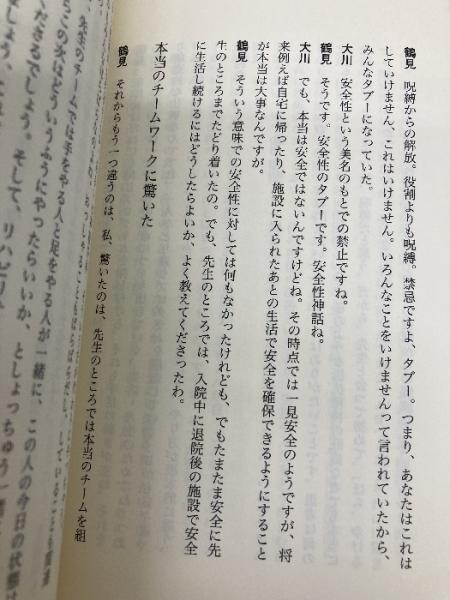 鶴見　呪縛からの解放。役割よりも呪縛。禁忌ですよ、タブー。つまり、あなたはこれは
していけません、これはいけません。いろんなことをいけませんって言われていたから、
みんなタブーになっていた。
大川　安全性という美名のもとでの禁止ですね。
鶴見　そうです。安全性のタブーです。安全性神話ね。
大川　でも、本当は安全ではないんですけどね。その時点では一見安全のようですが、将
来例えば自宅に帰ったり、施設に入られたあとの生活で安全を確保できるようにすること
が本当は大事なんですが。
鶴見　そういう意味での安全性に対しては何もなかったけれども、でもたまたま安全に先
生のところまでたどり着いたの。でも、先生のところでは、入院中に退院後の施設で安全
に生活し続けるにはどうしたらよいか、よく教えてくださったわ。
本当のチームワークに驚いた
鶴見　それからもう一つ違うのは、私、驚いたのは、先生のところでは本当のチームを組
先生のチームでは手をやる人と足をやる人が一緒に、この人の今日の状態は
らこの次はこういうふうにやったらいいか、としょっちゅう
だきるでしょう。そして、リハビリ